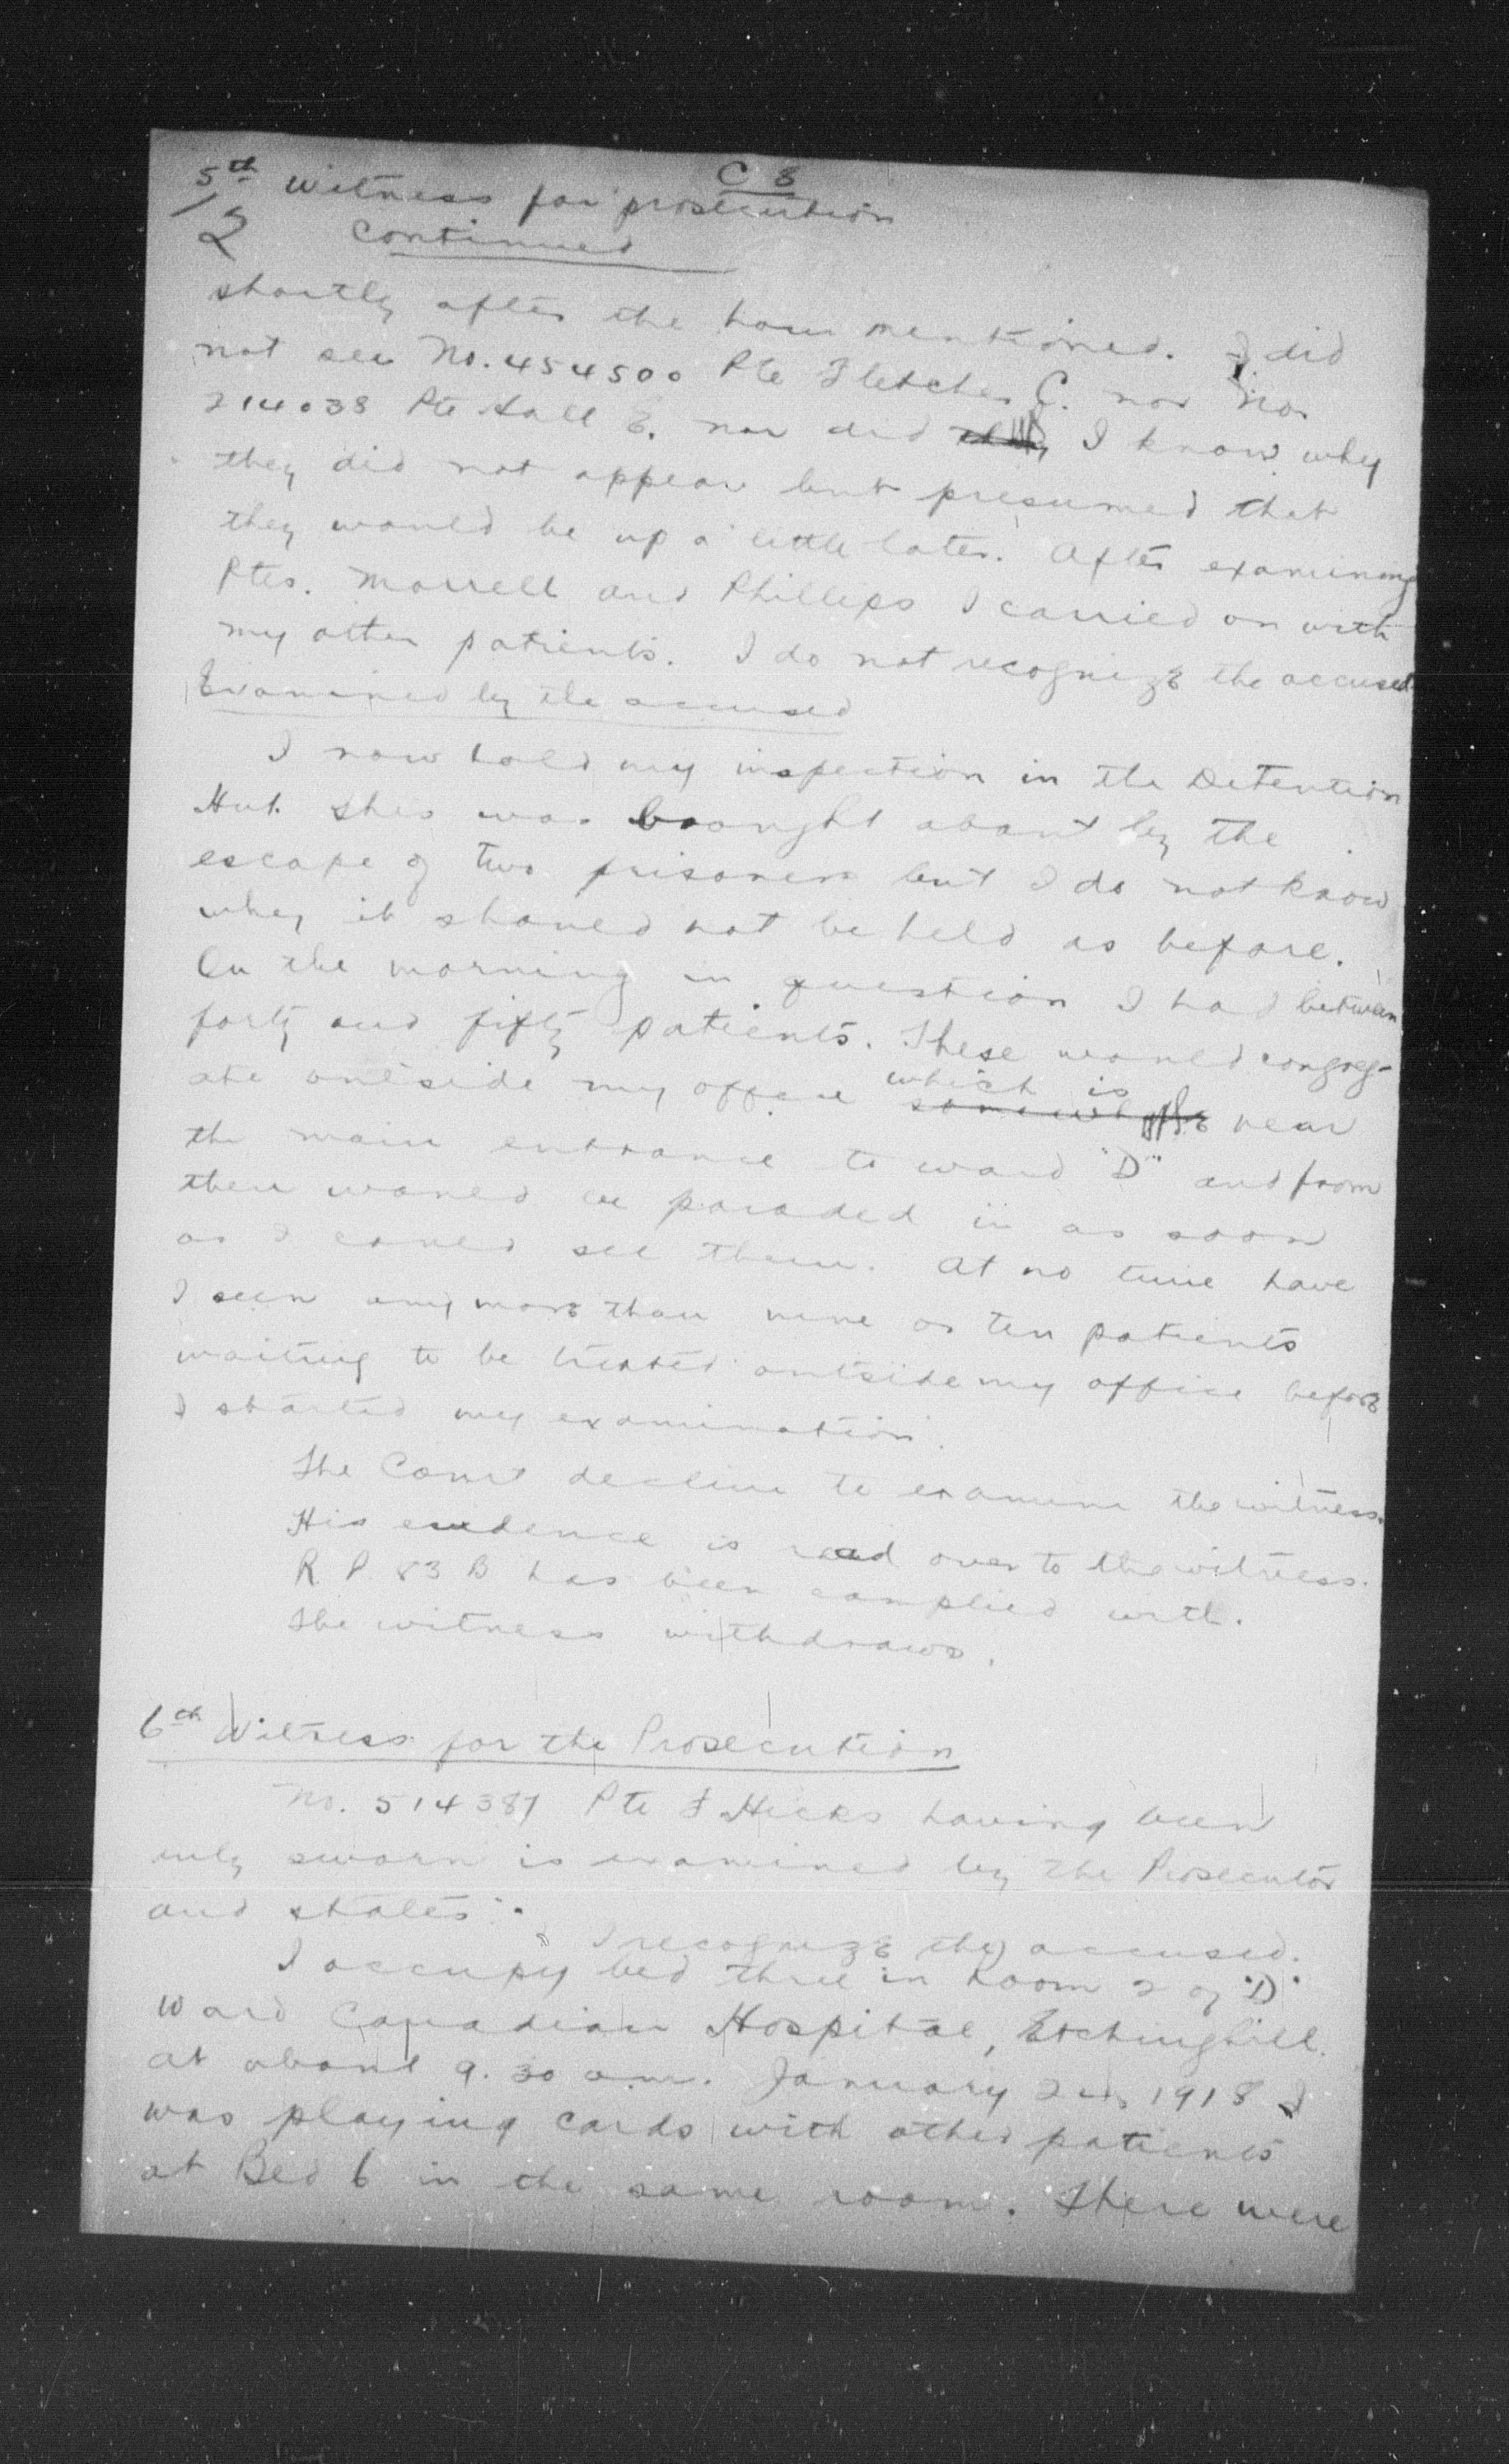 C 8
5th witness for prosecution
12 continued
shortly after the hour mentioned. I did
not see No. 454500 Pte Fletcher C. nor No.
214038 Pte Hall E. nor did I know why
they did not appear but presumed that
they would be up a little later. After examining
Ptes. Morrell and Phillips I carried on with
my other patients. I do not recognize the accused
Examined by the accused
I now hold my inspection in the Detention
Hut. This was brought about by the
escape of two prisoners but I do not know
why it should not be held as before.
On the morning in question I had between
forty and fifty patients. These would congreg-
ate outside my office which is near
the main entrance to ward "D" and from
there would be paraded in as soon
as I could see them. At no time have
I seen any more than nine or ten patients
waiting to be treated outside my office before
I started my examination.
The Court decline to examine the witness.
His evidence is read over to the witness.
R. P. 83 B has been complied with.
The witness withdraws.
6th Witness for the Prosecution
No. 514387 Pte F Hicks having been
duly sworn is examined by the Prosecutor
and states:
I recognize the accused.
I occupy bed three in Room 2 of "D"
Ward Canadian Hospital, Etchinghill.
At about 9.30 a.m. January 2nd, 1918 I
was playing cards with other patients
at Bed 6 in the same room. There were